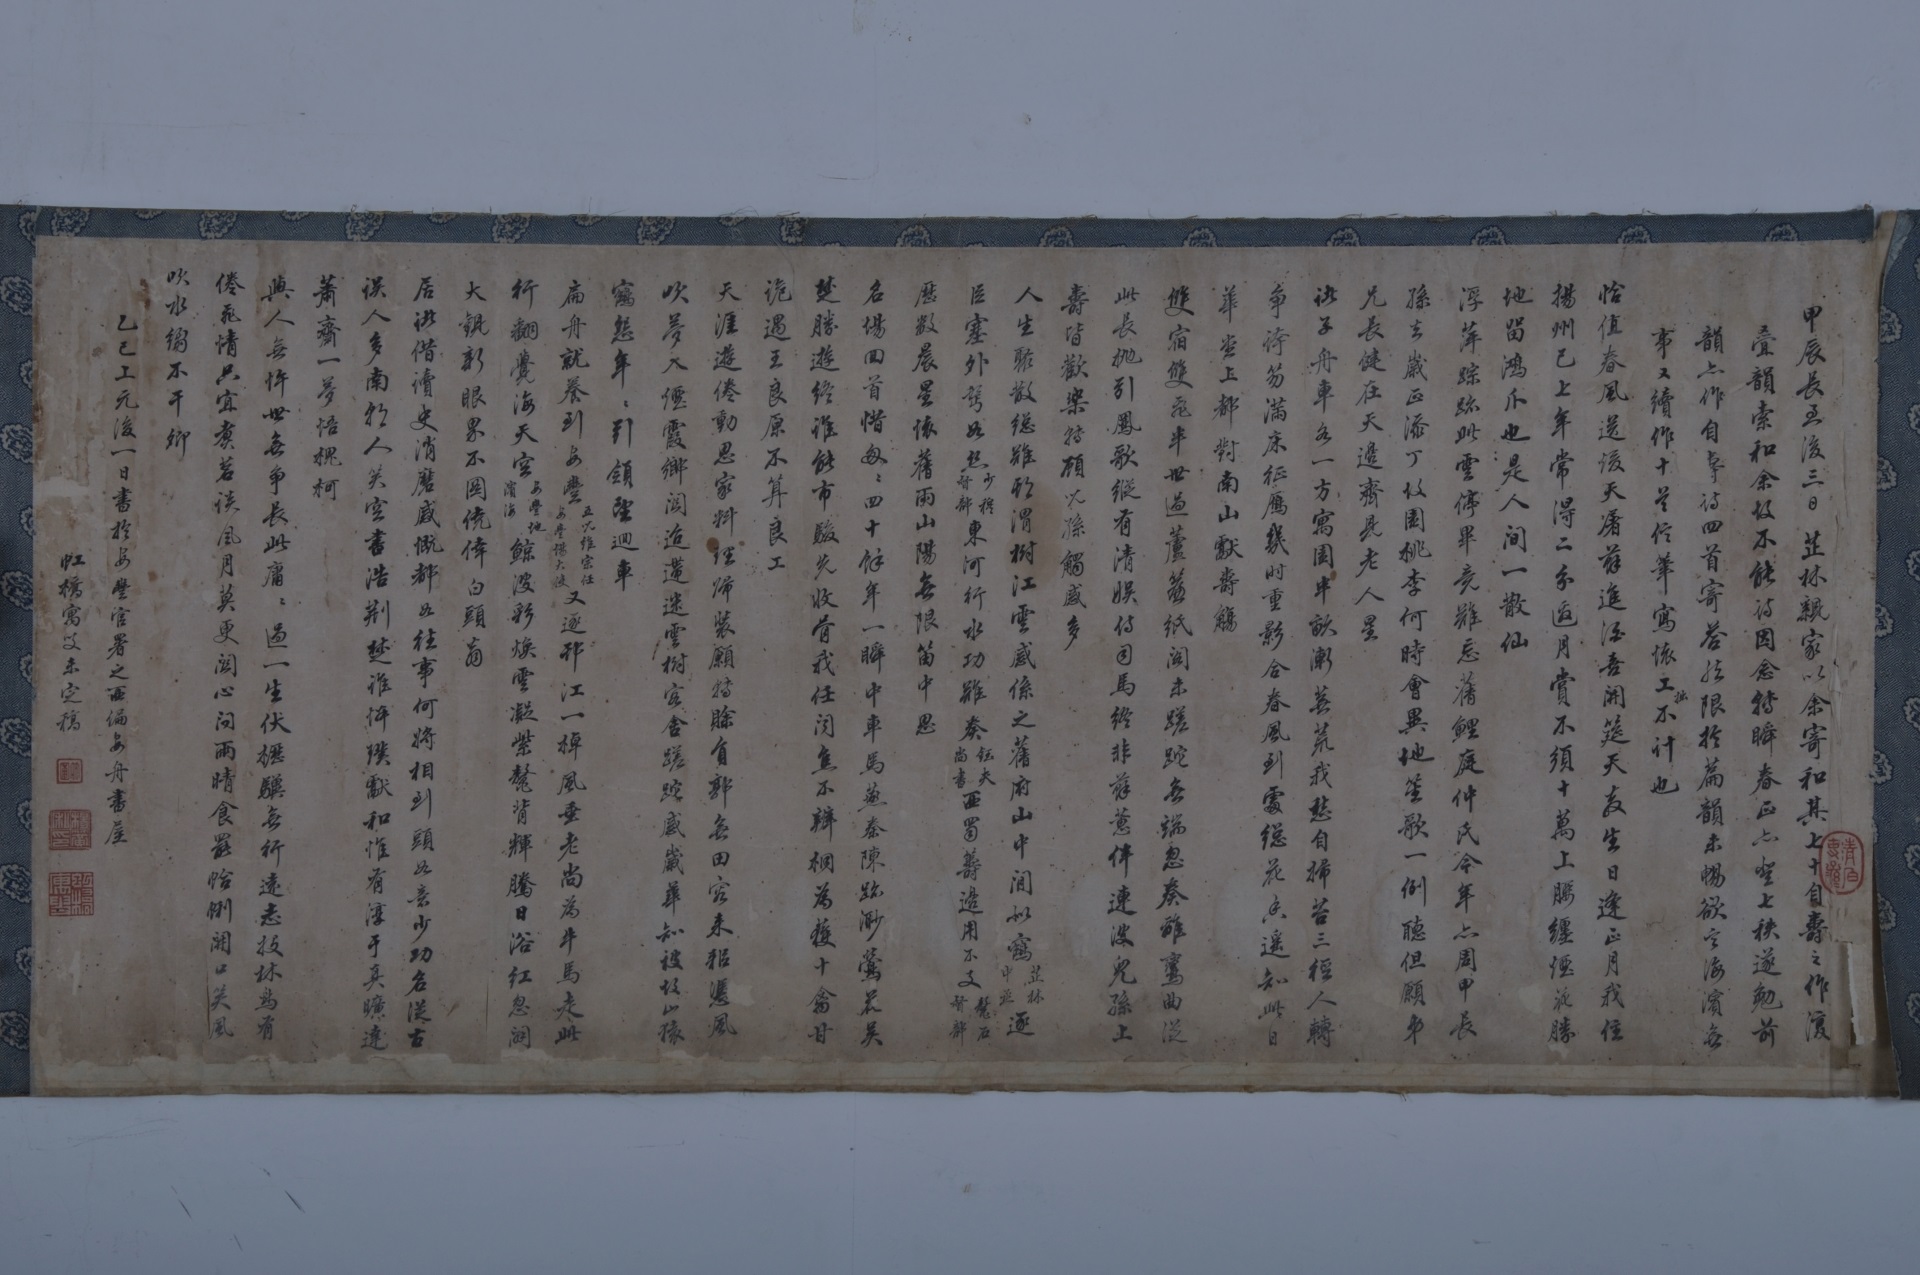 甲辰長至後三日芷林親家以余寄和其七十自壽之作復
疊韻索和余故不能詩因念轉瞬春正亦登七秩遂勉前
韻亦作自壽詩四首寄荅於限於篇韻未暢欲言海濱無
事又續作十首信筆寫懷工拙不計也
恰值春風送後天屠蘇進酒喜開筵天教生日逢正月我住
揚州已七年常得二分邀月賞不須十萬上腰纏煙花勝
地留鴻爪也是人間一散仙
浮萍踪跡此雲停畢竟難忘舊鯉庭仲氏今年亦周甲長
孫去歲正添丁故園桃李何時會異地笙歌一例聽但願弟
兄長健在天邊齊見老人星
諸子舟車各一方寓園半畝漸蕪荒我愁自掃苔三徑人轉
爭誇笏滿床征雁幾時重影合春風到處總花香遙知此日
華堂上都對南山獻壽觴
雙宿雙飛半世過蘆簾紙閣未蹉跎無端忽奏離鸞曲從
此長拋引鳳歌縱有清娛侍司馬終非蘇蕙伴連波兒孫上
壽皆歡樂轉顧兒孫觸感多
人生聚散總難形渭樹江雲感係之舊府山中閒似鶴芷林中丞逐
臣塞外髩如絲少穆督部東河行水功難奏鈺夫尚書西蜀籌邊用不支蟾石督部
歷數晨星懷舊雨山陽無限笛中思
名場回首惜匆匆四十餘年一瞬中車馬燕秦陳跡渺鶯花吳
楚勝遊終誰能市駿先收骨我任聞焦不辨桐為獲十禽甘
詭遇王良原不算良工
天涯遊倦動思家料理歸裝願轉賒負郭無田容未耜憑風
吹夢入煙霞鄉關迢遞迷雲樹客舍蹉跎感歲華知被故山猿
鶴怨年年引領望迴車
扁舟就養到安豐五兒維宗任安豐場大使又逐邗江一棹風垂老尚為牛馬走此
行翻覺海天空安豐地濱海鯨波彩煥雲凝紫鼇背輝騰日浴紅忽闢
大觀新眼界不圖僥倖白頭翁
居諸借讀史消磨感慨都如往事何將相到頭如意少功名從古
誤人多南朝人笑空書浩荆楚誰憐璞獻和惟有淳于真曠達
蕭齋一夢悟槐柯
與人無忤世無爭長此庸庸過一生伏櫪驥無行遠志投林鳥有
倦飛情只宜煮茗談風月莫更關心問雨晴食罷恰刪開口笑風
吹水縐不干卿
乙巳上元後一日書於安豐官署之西偏安舟書屋
虹橋寓叟未定稿